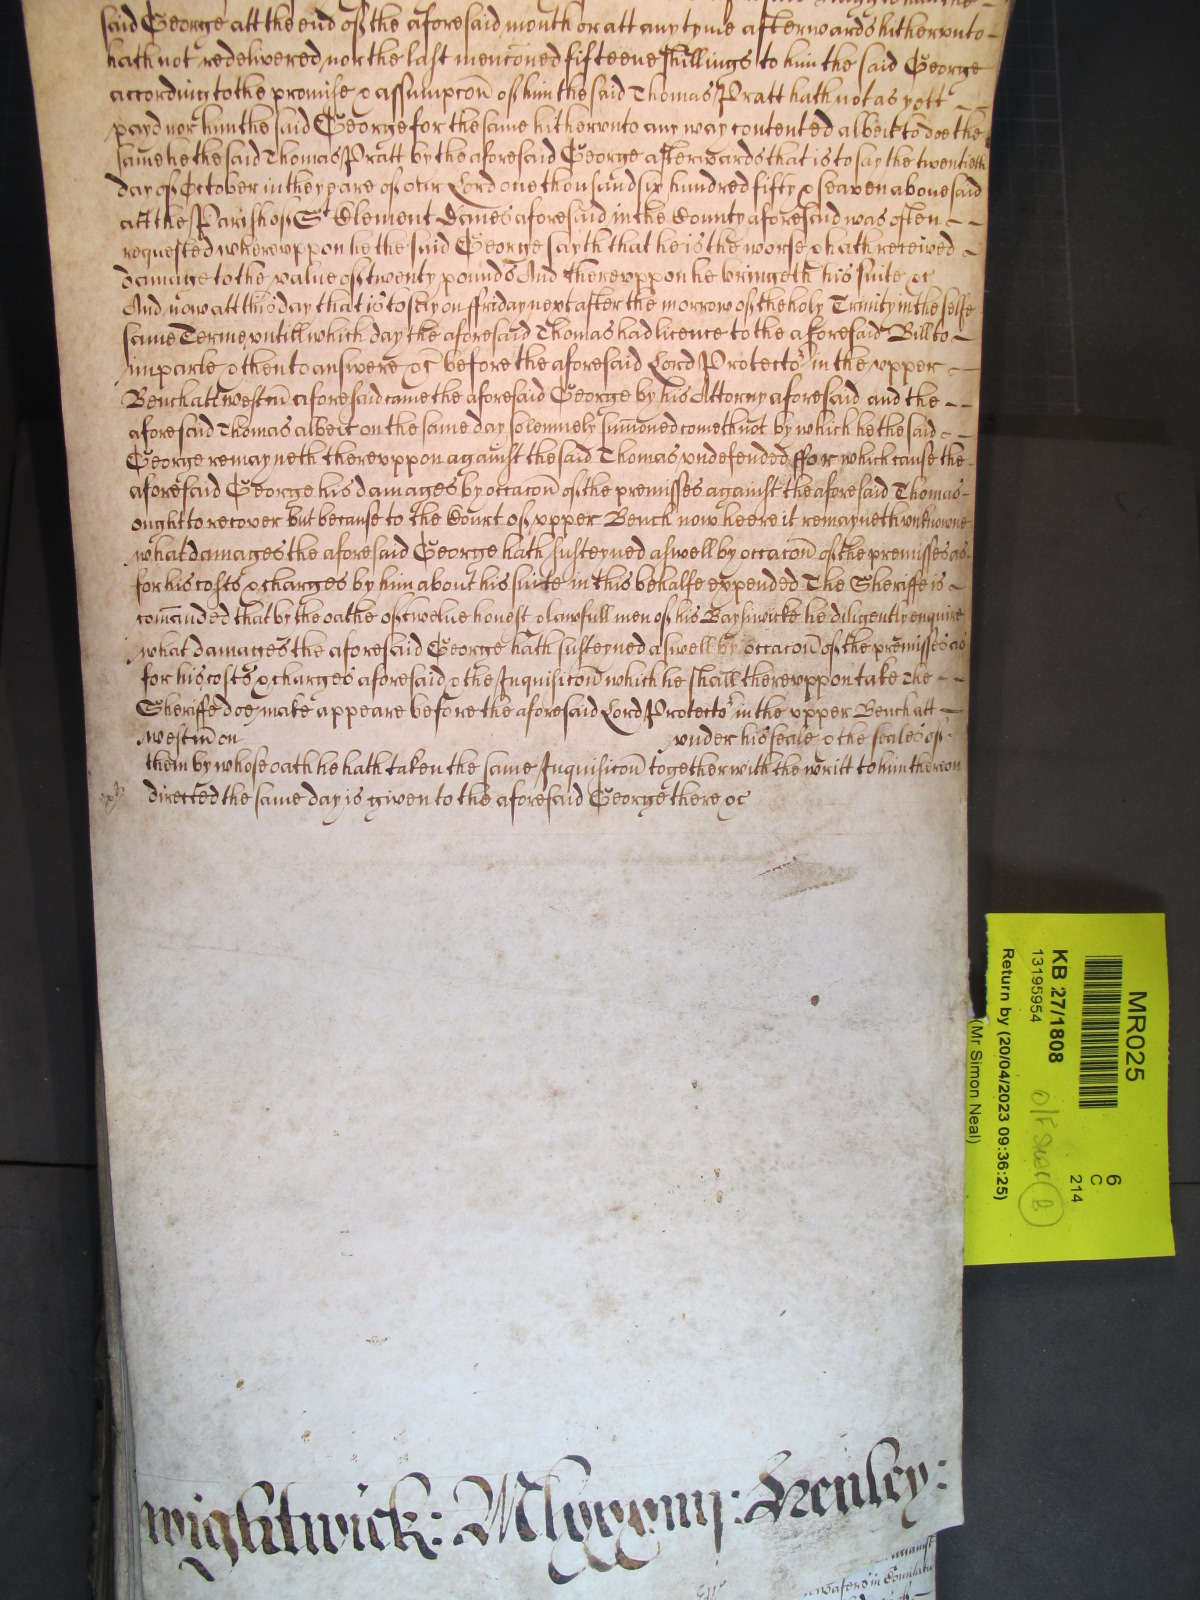 said George att the end of the aforesaid month or att any tyme afterwards hitherunto
hath not redelivered nor the last mentioned fifteene shillings to him the said George
according to the promise & assumpcon of him the said Thomas Pratt hath not as yett
payd nor him the said George for the same hitherunto any way contented albeit to doe the
same he the said Thomas Pratt by the aforesaid George afterwards that is to say the twentieth
day of October in the yeare of our Lord one thousand six hundred fifty & seaven abovesaid
att the Parish of St Clement Danes aforesaid in the County aforesaid was often
requested whereuppon he the said George sayth that he is the worse & hath received
damage to the value of twenty pounds And thereuppon he bringeth his suite &c
And now att this day that is to say on ffriday next after the morrow of the holy Trinity in the selfe
same Terme untill which day the aforesaid Thomas had licence to the aforesaid Bill to
imparle & then to answere &c before the aforesaid Lord Protector in the upper
Bench att westm aforesaid came the aforesaid George by his Attorny aforesaid and the
aforesaid Thomas albeit on the same day solemnely sumoned cometh not by which he the said
George remayneth thereuppon against the said Thomas undefended ffor which cause the
aforesaid George his damages by occacon of the premisses against the aforesaid Thomas
ought to recover but because to the Court of upper Bench now heere it remayneth unknowne
what damages the aforesaid George hath susteyned aswell by occacon of the premisses as
for his costs & charges by him about his suite in this behalfe expended The Sheriffe is
comanded that by the oathe of twelve honest & lawfull men of his Bayliwicke he diligently enquire
what damages the aforesaid George hath susteyned aswell by occacon of the premisses as
for his costs & charges aforesaid & the Inquisicon which he shall thereuppon take the
Sheriffe doe make appeare before the aforesaid Lord Protector in the upper Bench att
westm on under his seale & the seales of
them by whose oath he hath taken the same Inquisicon together with the writt to him thereon
directed the same day is given to the aforesaid George there &c
wightwick: Mlxxxiiij: Henley:
MR025
KB 27/1808
13195954
Return by (20/04/2023 09:36:25)
(Mr Simon Neal)
6
C
214